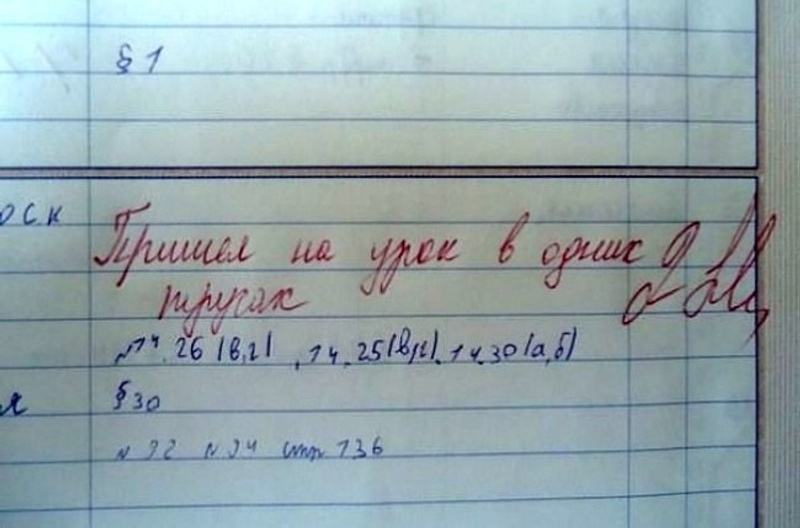 § 1
оск
Пришел на урок в одних 2
трусах
№14.26 (в,г), 14.25(в,г), 14.30(а,б)
я § 30
№ 92 № 94 стр 136